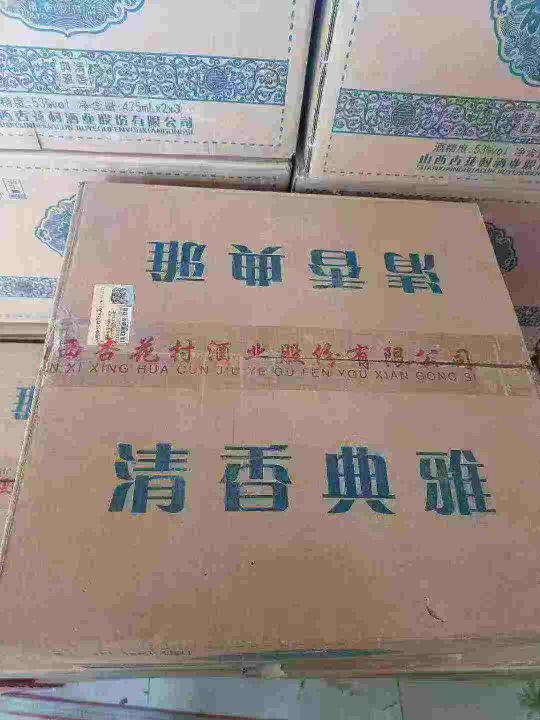 度:53%vol 净含量:475mL×2×3
西杏花村酒业股份有限公司
酒精度:53%vol 净含
山西杏花村酒业股
清香典雅
西杏花村酒业股份有限公司
N XI XING HUA CUN JIU YE GU FEN YOU XIAN GONG SI
清香典雅
雅